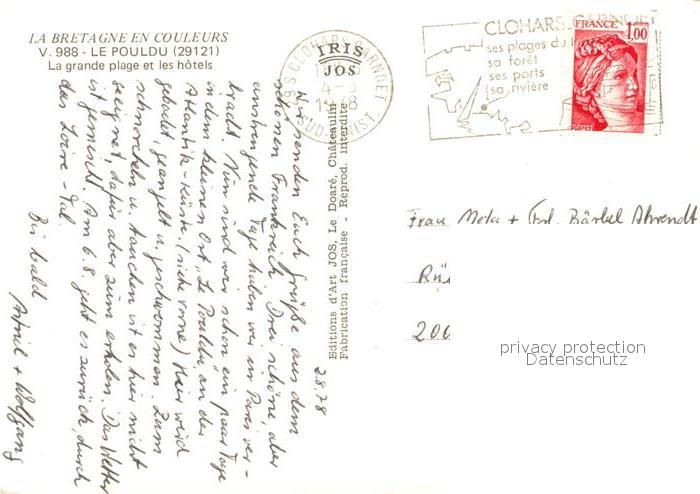 LA BRETAGNE EN COULEURS
V. 988 - LE POULDU (29121)
La grande plage et les hôtels
IRIS
JOS
Editions d'Art JOS, Le Doaré, Châteaulin
Fabrication française - Reprod. interdite
CLOHARS-CARNOET
ses plages du
sa forêt
ses ports
sa rivière
FRANCE
1,00
POSTES
2.8.78
Wir senden Euch Grüße aus dem
schönen Frankreich. Drei schöne, aber
anstrengende Tage haben wir in Paris ver-
bracht. Nun sind wir schon ein paar Tage
in dem kleinen Ort "Le Pouldu" an der
Atlantik-Küste. (siehe vorne) Hier wird
gebadet, geangelt u. geschwommen. Zum
schnorcheln u. tauchen ist es hier nicht
geeignet, dafür aber zum erholen. Das Wetter
ist gemischt. Am 6.8. geht es zurück, durch
das Loire-Tal.
Bis bald
+ Wolfgang
Frau Meta + Frl. Bärbel Ahrendt
Rü
200
privacy protection
Datenschutz